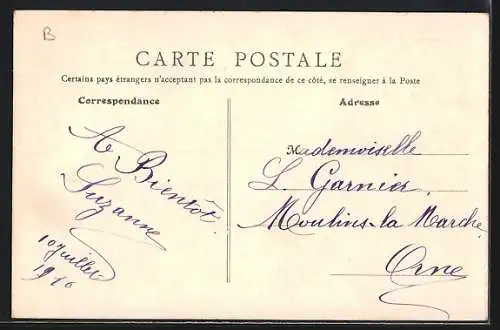 B
CARTE POSTALE
Certains pays étrangers n'acceptant pas la correspondance de ce côté, se renseigner à la Poste
Correspondance
A Bientôt.
Suzanne
10 Juillet
1910
Adresse
Mademoiselle
L. Garnier,
Moulins-la Marche
Orne